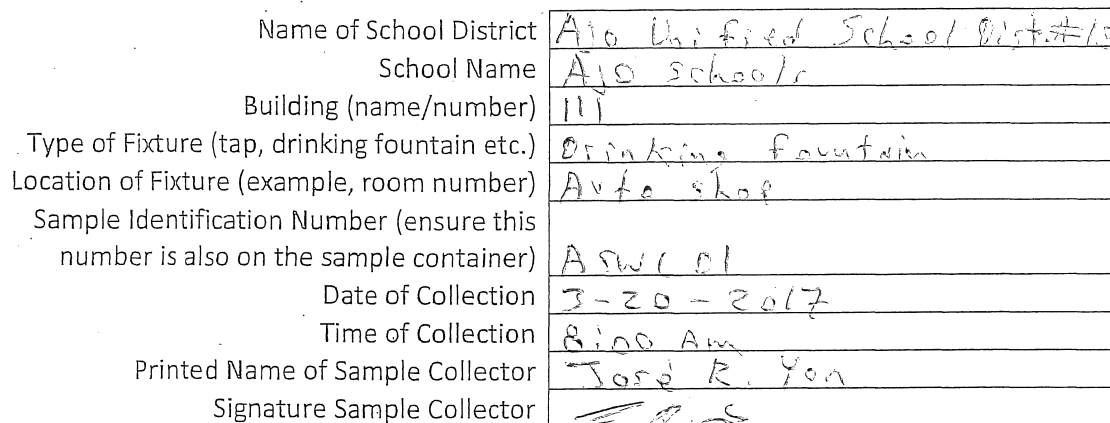 Name of School District Ajo Unified School Dist.#15
School Name Ajo Schools
Building (name/number) 111
Type of Fixture (tap, drinking fountain etc.) Drinking fountain
Location of Fixture (example, room number) Auto shop
Sample Identification Number (ensure this
number is also on the sample container)
Date of Collection 3-20-2017
Time of Collection 8:00 Am
Printed Name of Sample Collector José R. Yon
Signature Sample Collector